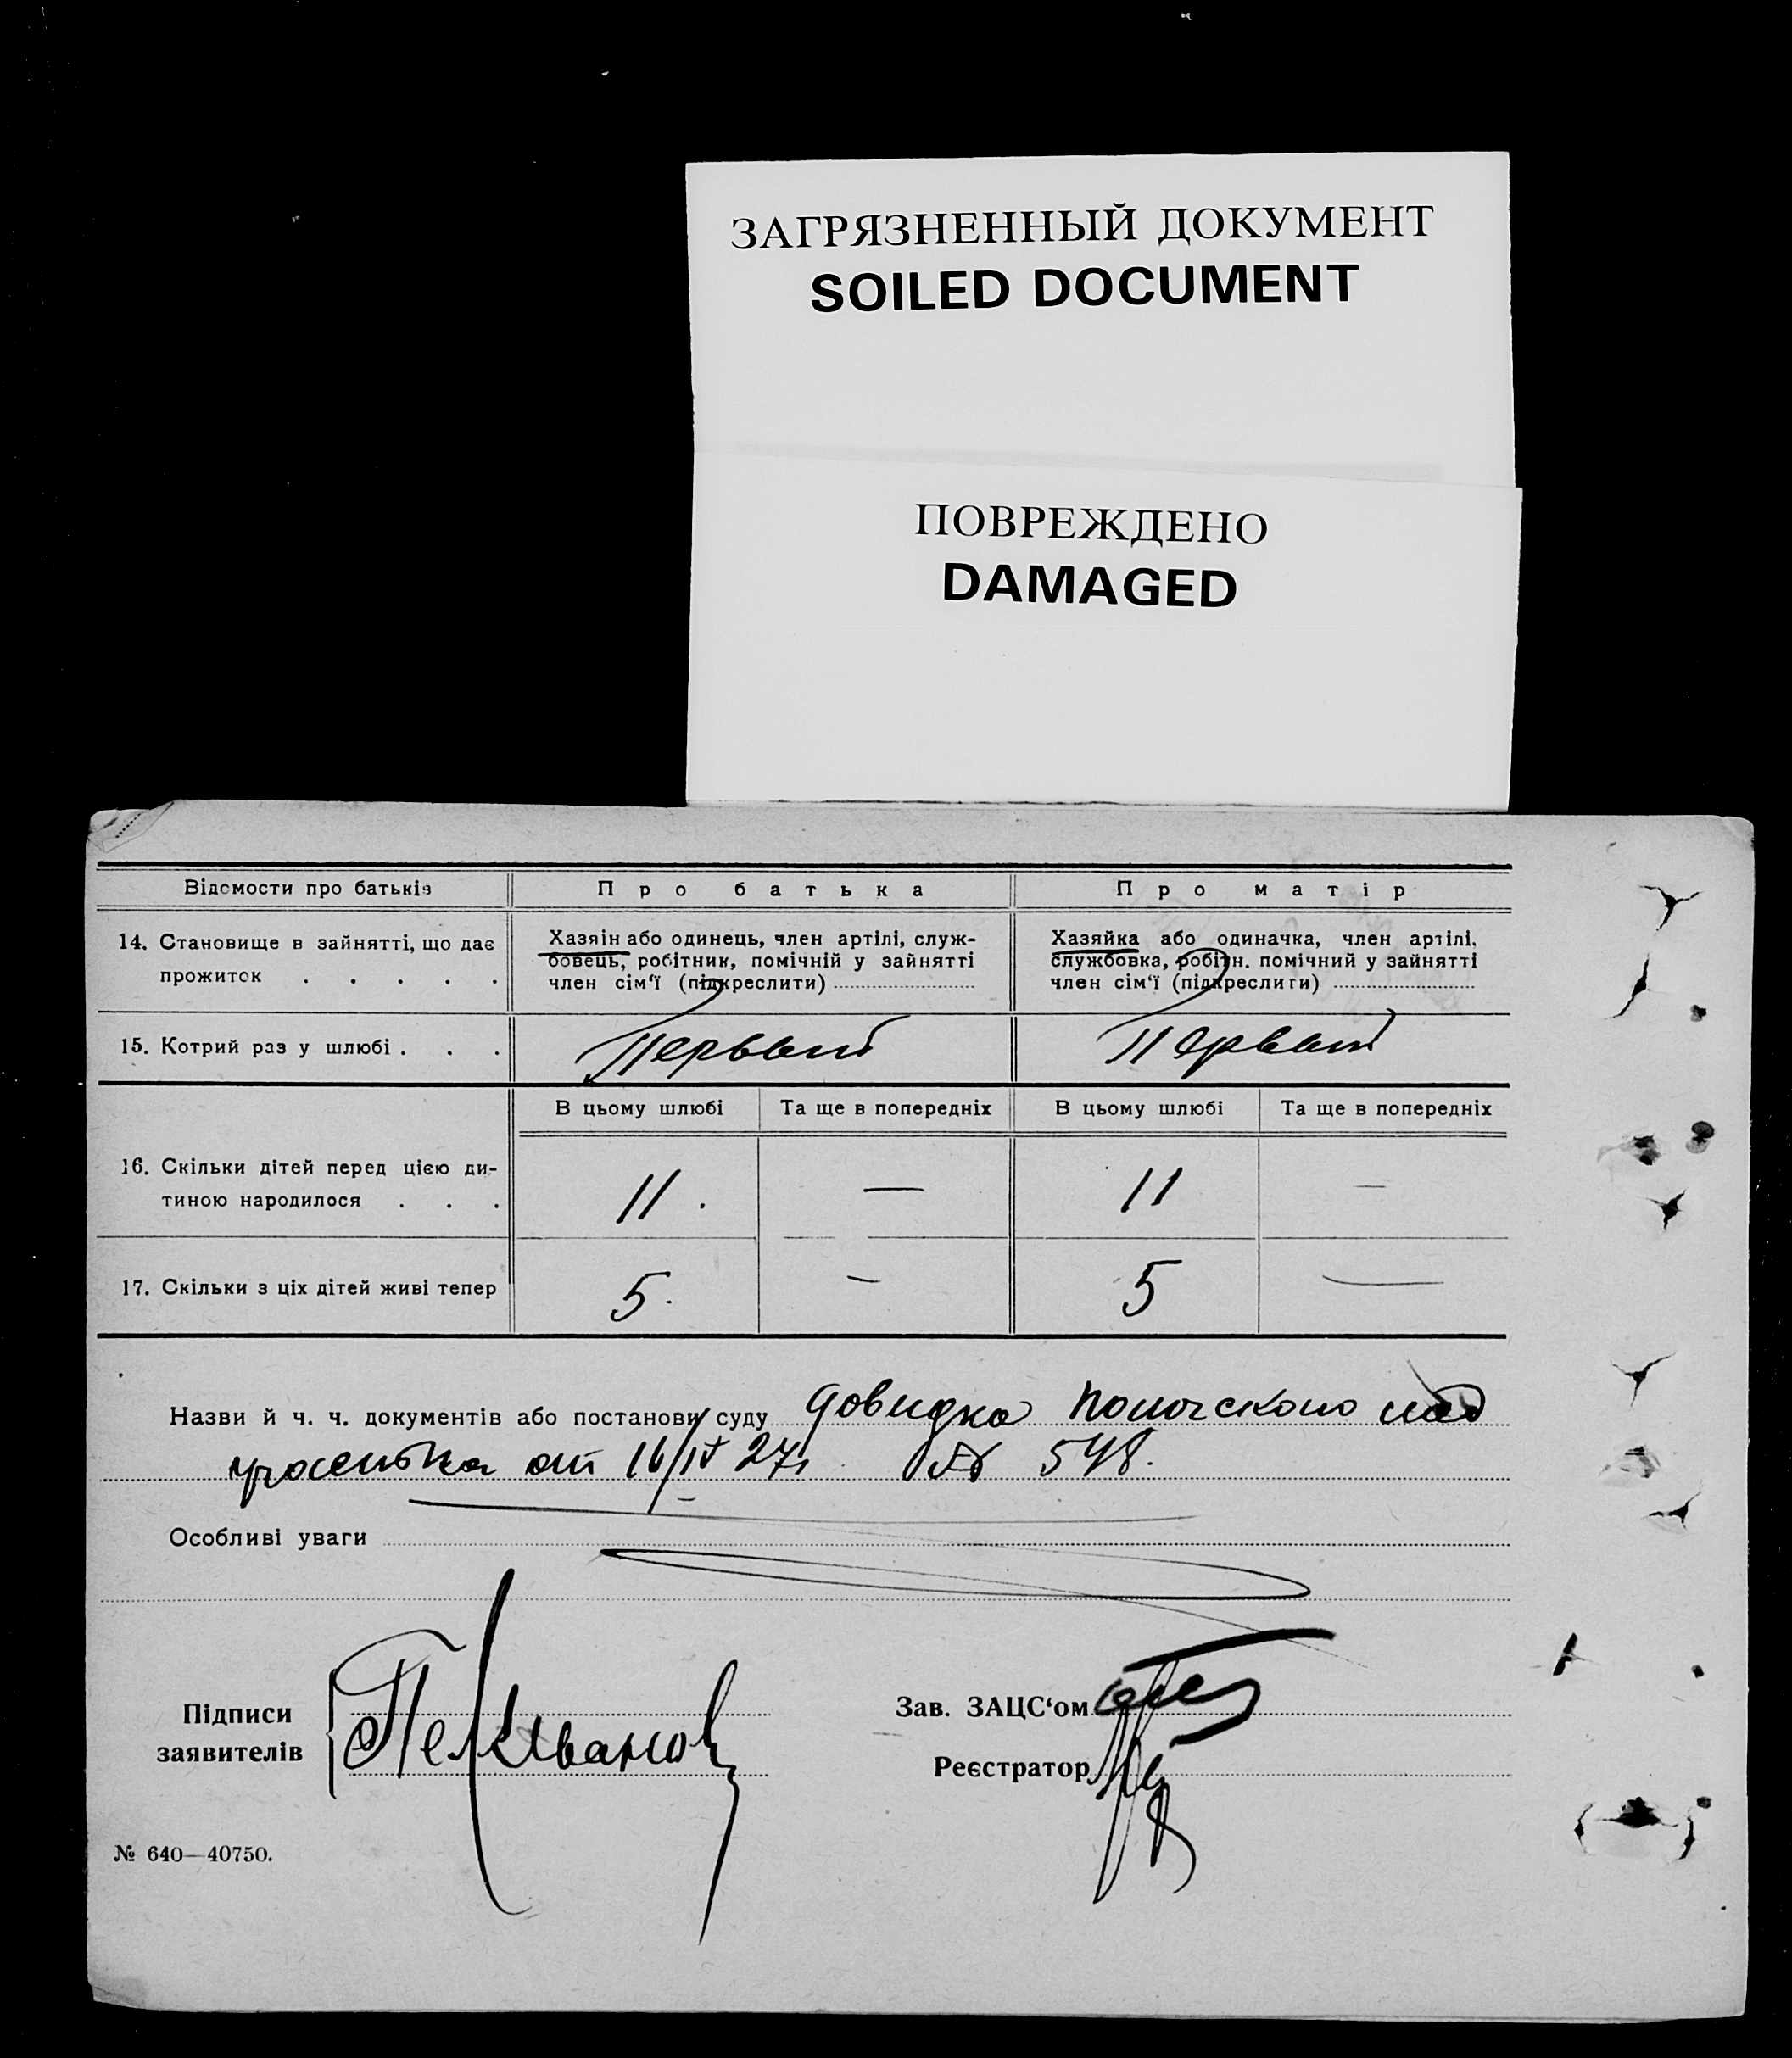 ЗАГРЯЗНЕННЫЙ ДОКУМЕНТ
SOILED DOCUMENT
ПОВРЕЖДЕНО
DAMAGED
Відомости про батьків
Про батька
Про матір
14. Становище в зайнятті, що дає
прожиток . . . . .
Хазяїн або одинець, член артілі, служ-
бовець, робітник, помічній у зайнятті
член сім'ї (підкреслити)
Хазяйка або одиначка, член артілі,
службовка, робітн. помічний у зайнятті
член сім'ї (підкреслити)
15. Котрий раз у шлюбі . . .
Первый
Первый
В цьому шлюбі
Та ще в попередніх
В цьому шлюбі
Та ще в попередніх
16. Скільки дітей перед цією ди-
тиною народилося . . .
11.
—
11
—
17. Скільки з ціх дітей живі тепер
5.
—
5
—
Назви й ч. ч. документів або постанови суду довидка
от 16/IV 27г № 548.
Особливі уваги
Підписи
заявителів
Зав. ЗАЦС'ом
Реєстратор
№ 640—40750.